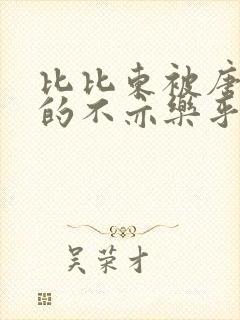 比比东被唐
的不亦乐乎
吴荣才